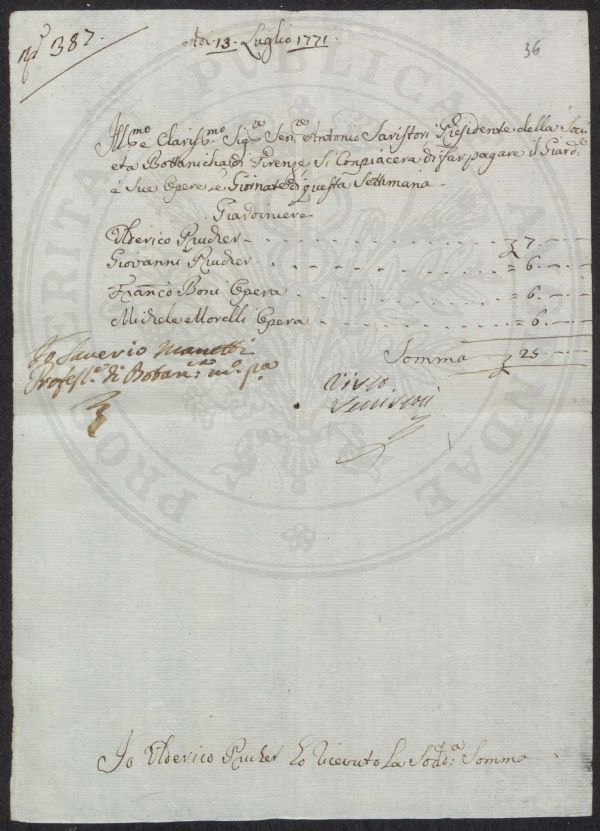 N.º 387.
Adi 13. Luglio 1771.
36
Ill.mo e Clariss.mo Sig.re Sen.re Antonio Saristori Presidente della Soci
eta Bottanicha di Firenze Si Conpiacera di far pagare il Giard.e
e Sue Opere le Giornate di questa Settimana
Giardiniere
Ulderico Prucker 7. —
Giovanni Prucker = 6. —
Franco Boni Opera = 6. —
Michele Morelli Opera = 6. —
Somma 25 —
Io Saverio Manetti
Profess.e di Botan.ca m.o p.a
Visto
Io Ulderico Prucker ho Riceuto La Sod.a Somma
PROSPERITATI PUBLICAE AUGENDAE